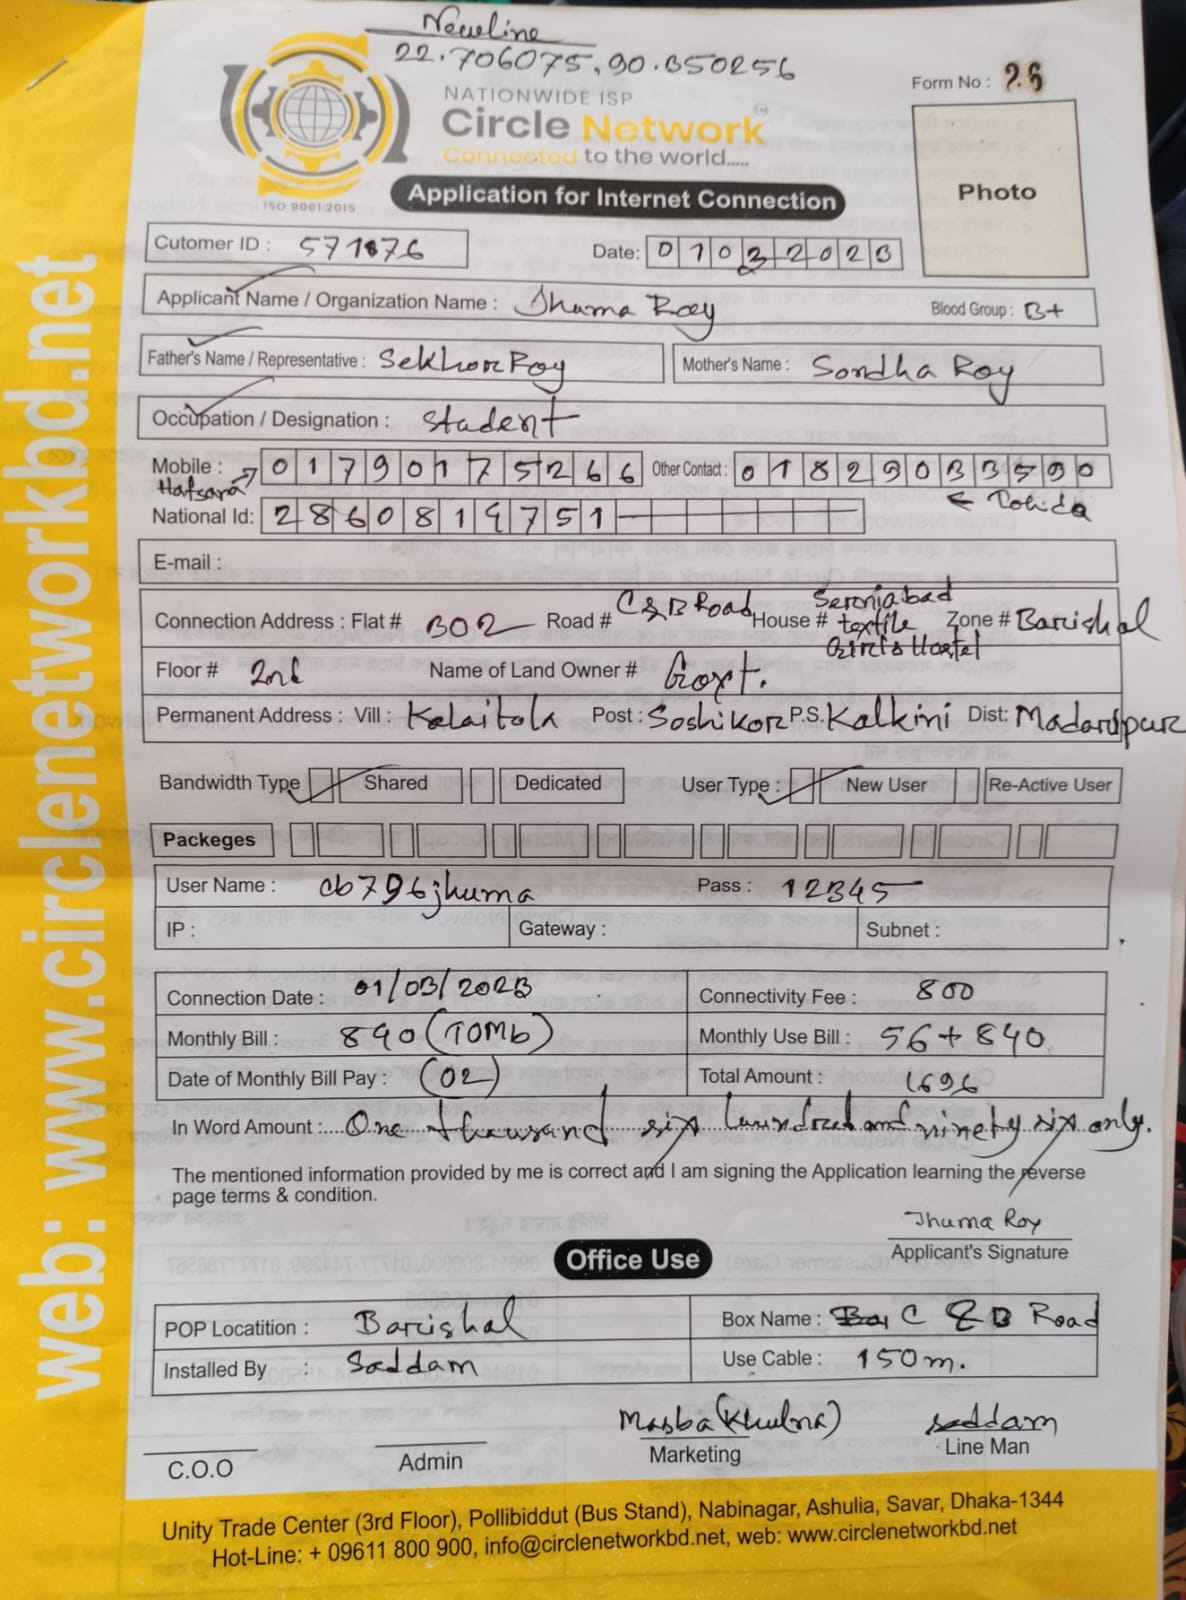 Newline
22.706075, 90.350256
NATIONWIDE ISP
Circle Network
Connected to the world.....
ISO 9001:2015
Form No : 26
Photo
Application for Internet Connection
Cutomer ID : 571876
Date: 01032023
Applicant Name / Organization Name : Jhuma Roy
Blood Group : B+
Father's Name / Representative : Sekhor Roy
Mother's Name : Sondha Roy
Occupation / Designation : Student
Mobile : 01790175266
Other Contact : 01829033590
Hafsara
← Tohida
National Id: 2860819751
E-mail :
Connection Address : Flat # 302 Road # C&B Road House # Serniabad textile Girls Hostel Zone # Barishal
Floor # 2nd Name of Land Owner # Govt.
Permanent Address : Vill : Kalaitola Post : Soshikor P.S. Kalkini Dist: Madaripur
Bandwidth Type Shared Dedicated User Type : New User Re-Active User
Packeges
User Name : cb796jhuma Pass : 12345
IP : Gateway : Subnet :
Connection Date : 01/03/2023 Connectivity Fee : 800
Monthly Bill : 840 (10Mb) Monthly Use Bill : 56+840
Date of Monthly Bill Pay : (02) Total Amount : 1696
In Word Amount :.... One thousand six hundred and ninety six only.
The mentioned information provided by me is correct and I am signing the Application learning the reverse
page terms & condition.
Jhuma Roy
Applicant's Signature
Office Use
POP Locatition : Barishal Box Name : C & B Road
Installed By : Saddam Use Cable : 150m.
Masba (Khulna) saddam
C.O.O Admin Marketing Line Man
Unity Trade Center (3rd Floor), Pollibiddut (Bus Stand), Nabinagar, Ashulia, Savar, Dhaka-1344
Hot-Line: + 09611 800 900, info@circlenetworkbd.net, web: www.circlenetworkbd.net
web: www.circlenetworkbd.net